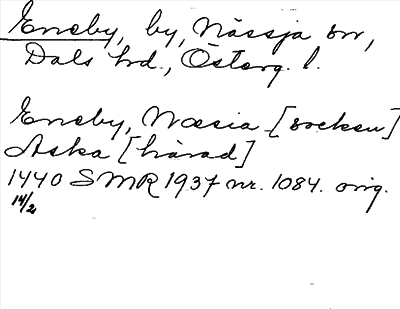 Eneby, by, Nässja sn,
Dals hd., Österg. l.
Eneby, Næsia [socken]
Aska [härad]
1440 SMR 1937 nr. 1084. orig.
14/2